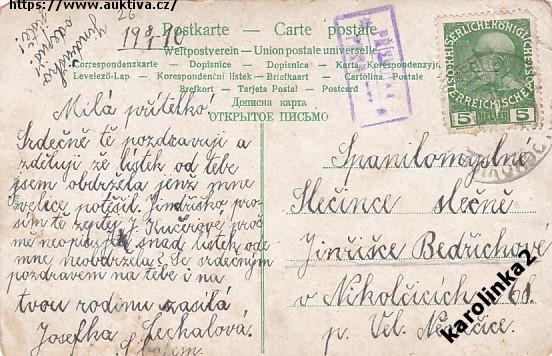 https://www.auktiva.cz/
26
19 8/7 10
Jindřisko
odepiš
Postkarte – Carte postale
Weltpostverein – Union postale universelle
Correspondenzkarte – Dopisnice – Dopisnica – Karta Korespondenzyjna
Levelező-Lap – Korespondenční lístek – Briefkaart – Cartolina Postale
Brefkort – Tarjeta Postal – Postcard
Дописна карта
ОТКРЫТОЕ ПИСЬМО
KAISERLICHE KÖNIGLICHE
ÖSTERREICHISCHE POST
5 HELLER 5
Milá přítelko!
Srdečně tě pozdravuji a
zděluji že lístek od tebe
jsem obdržela jenž mne
velice potěšil. Jindřisko pro-
sím tě zeptej J. Kučerové proč
mě neopisuje snad lístek ode
mne neobdržela? Se srdečným
pozdravem na tebe i na
tvou rodinu zasílá
Josefka Sechalová.
Spanilomyslné
Slečince slečně
Jinřišce Bedřichové
v Nikolčicích 61.
p. Vel. Němčice.
karolinka2